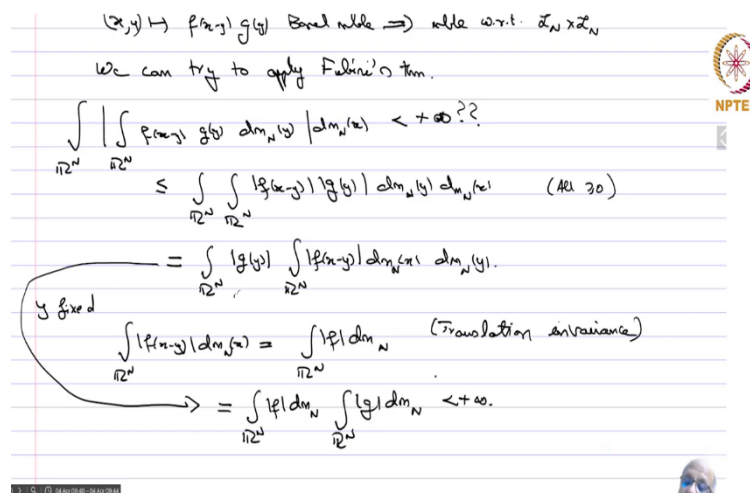 (x,y) ↦ f(x-y) g(y) Borel mble ⇒ mble w.r.t. 𝓛_N × 𝓛_N
We can try to apply Fubini's thm.
NPTEL
∫_{ℝ^N} | ∫_{ℝ^N} f(x-y) g(y) dm_N(y) | dm_N(x) < +∞ ??
≤ ∫_{ℝ^N} ∫_{ℝ^N} |f(x-y)| |g(y)| dm_N(y) dm_N(x) (All ≥0)
= ∫_{ℝ^N} |g(y)| ∫_{ℝ^N} |f(x-y)| dm_N(x) dm_N(y).
y fixed
∫_{ℝ^N} |f(x-y)| dm_N(x) = ∫_{ℝ^N} |f| dm_N (Translation invariance)
= ∫_{ℝ^N} |f| dm_N ∫_{ℝ^N} |g| dm_N < +∞.